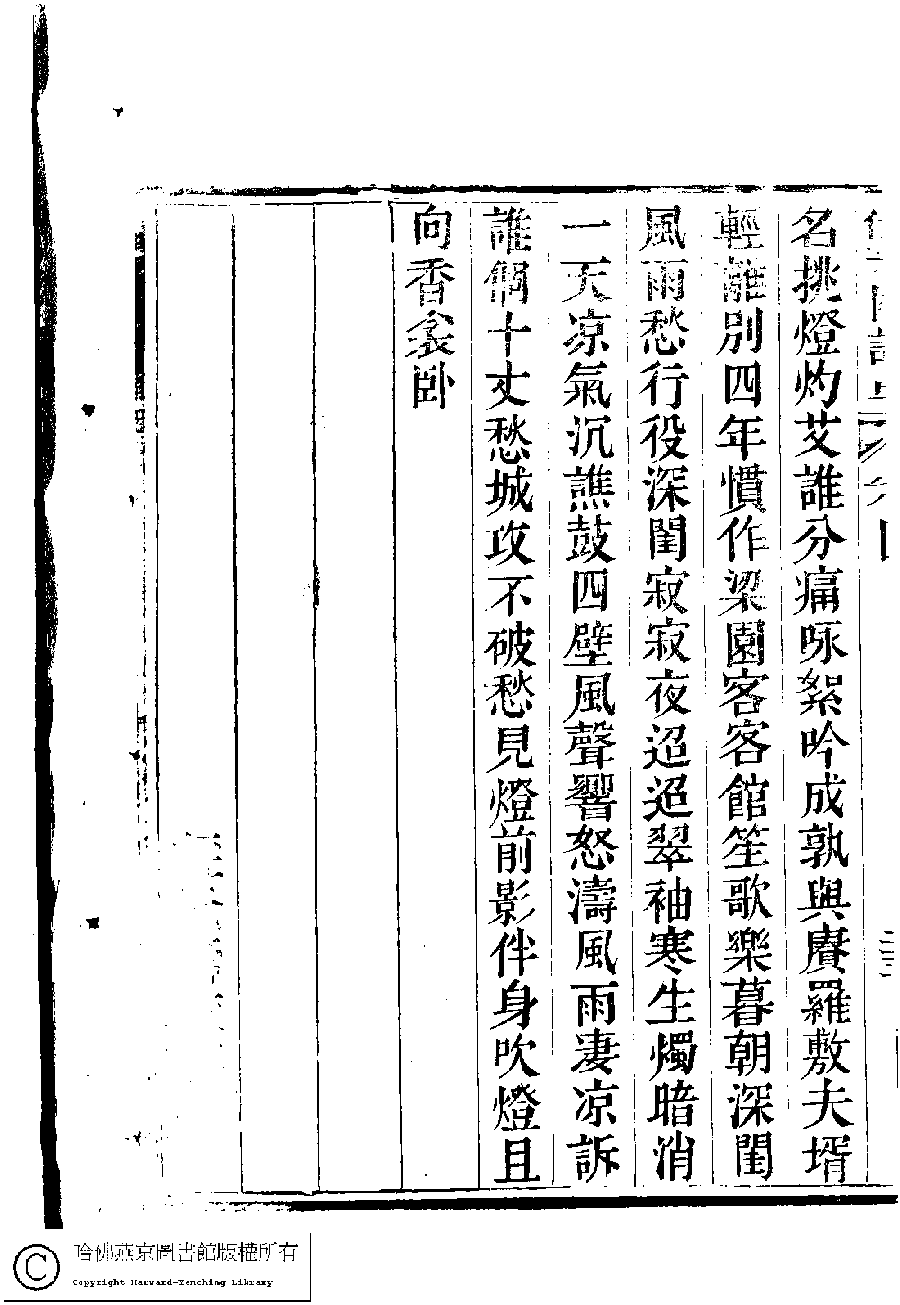 名挑燈灼艾誰分痛咏絮吟成孰與賡羅敷夫壻
輕離別四年慣作梁園客客館笙歌樂暮朝深閨
風雨愁行役深閨寂寂夜迢迢翠袖寒生燭暗消
一天凉氣沉譙鼓四壁風聲響怒濤風雨淒凉訴
誰個十丈愁城攻不破愁見燈前影伴身吹燈且
向香衾卧
二三
哈佛燕京圖書館版權所有
Copyright Harvard-Yenching Library